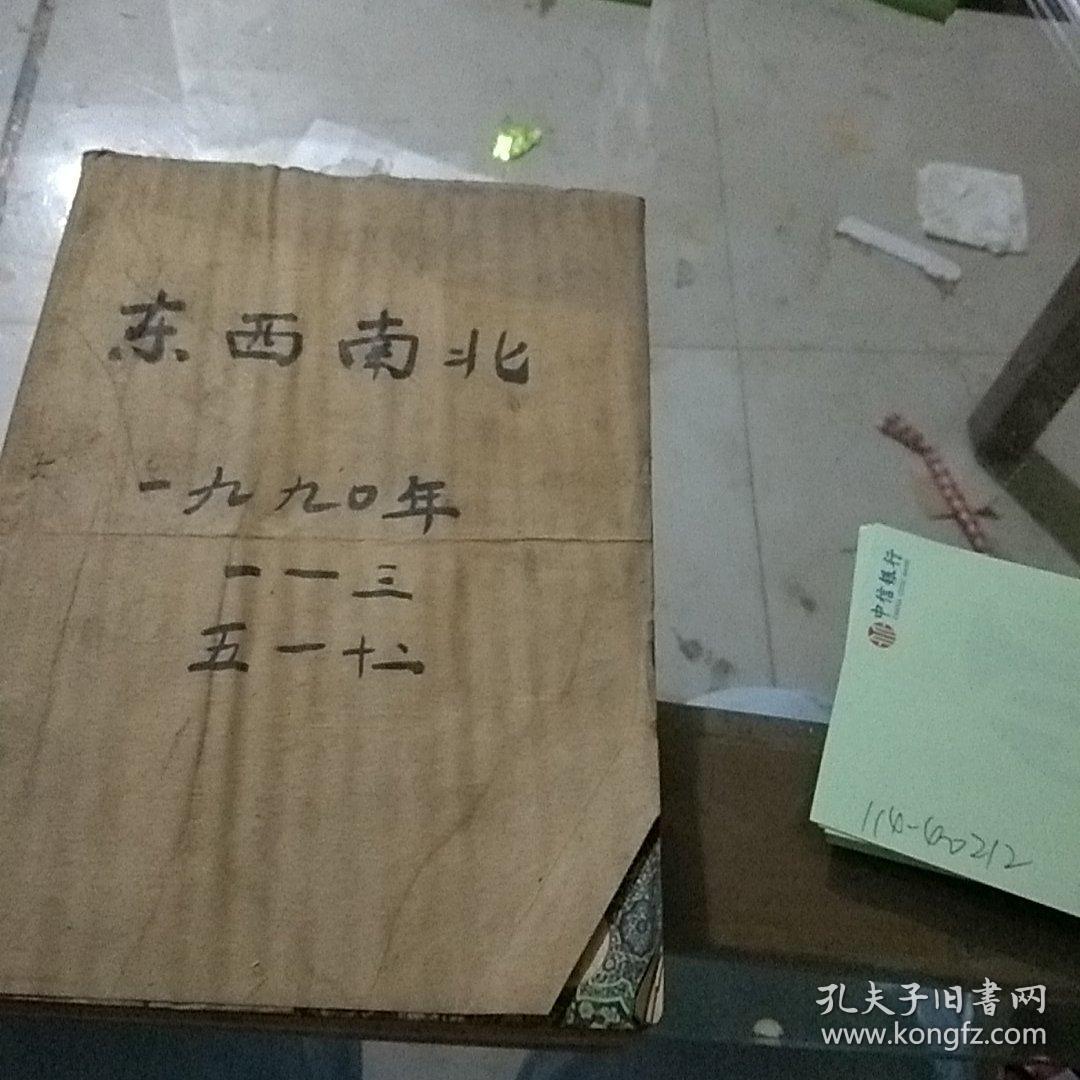 东西南北
一九九〇年
一一三
五一十二
中信银行
CHINA CITIC BANK
114-60212
孔夫子旧書网
www.kongfz.com